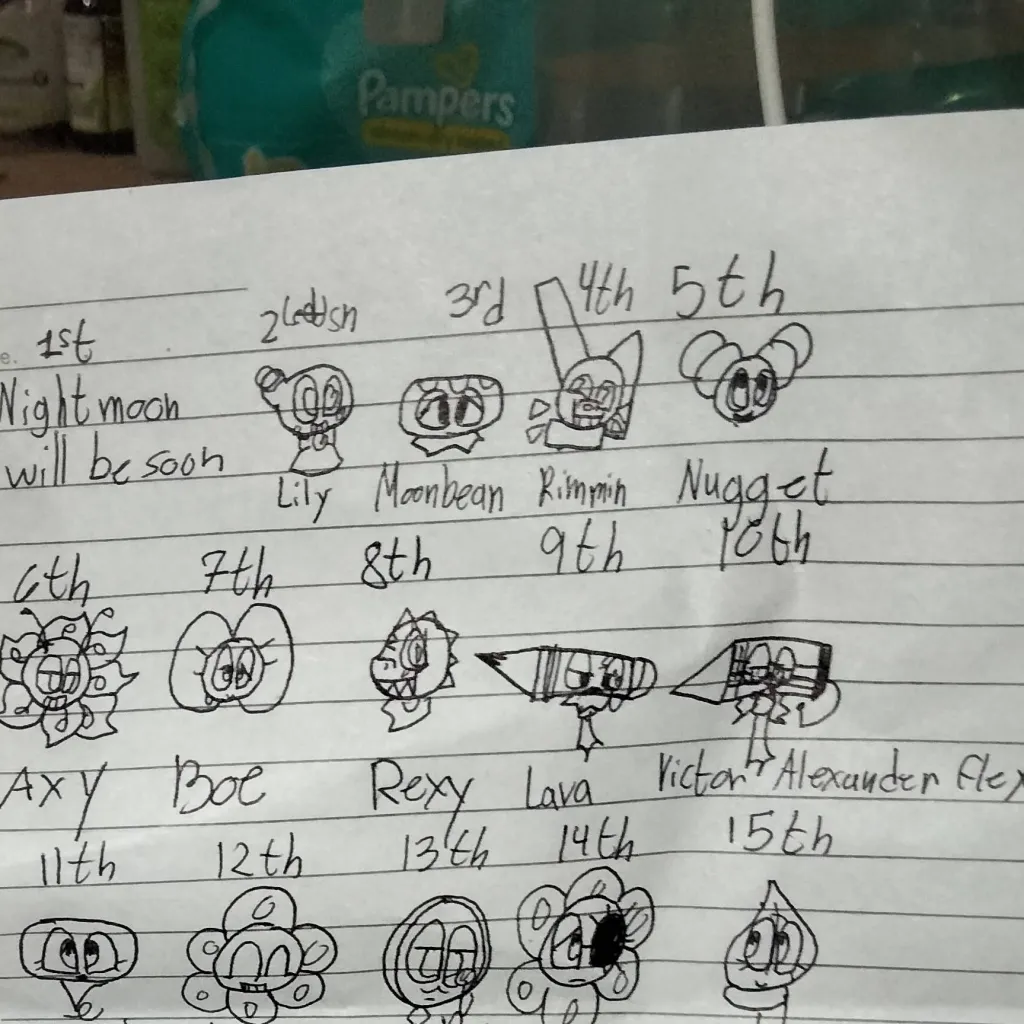 Pampers
1st 3rd 4th 5th
Night moon
will be soon
Lily Moonbean Rimmin Nugget
6th 7th 8th 9th 10th
Axy Boe Rexy Lava Victor Alexander Flex
11th 12th 13th 14th 15th